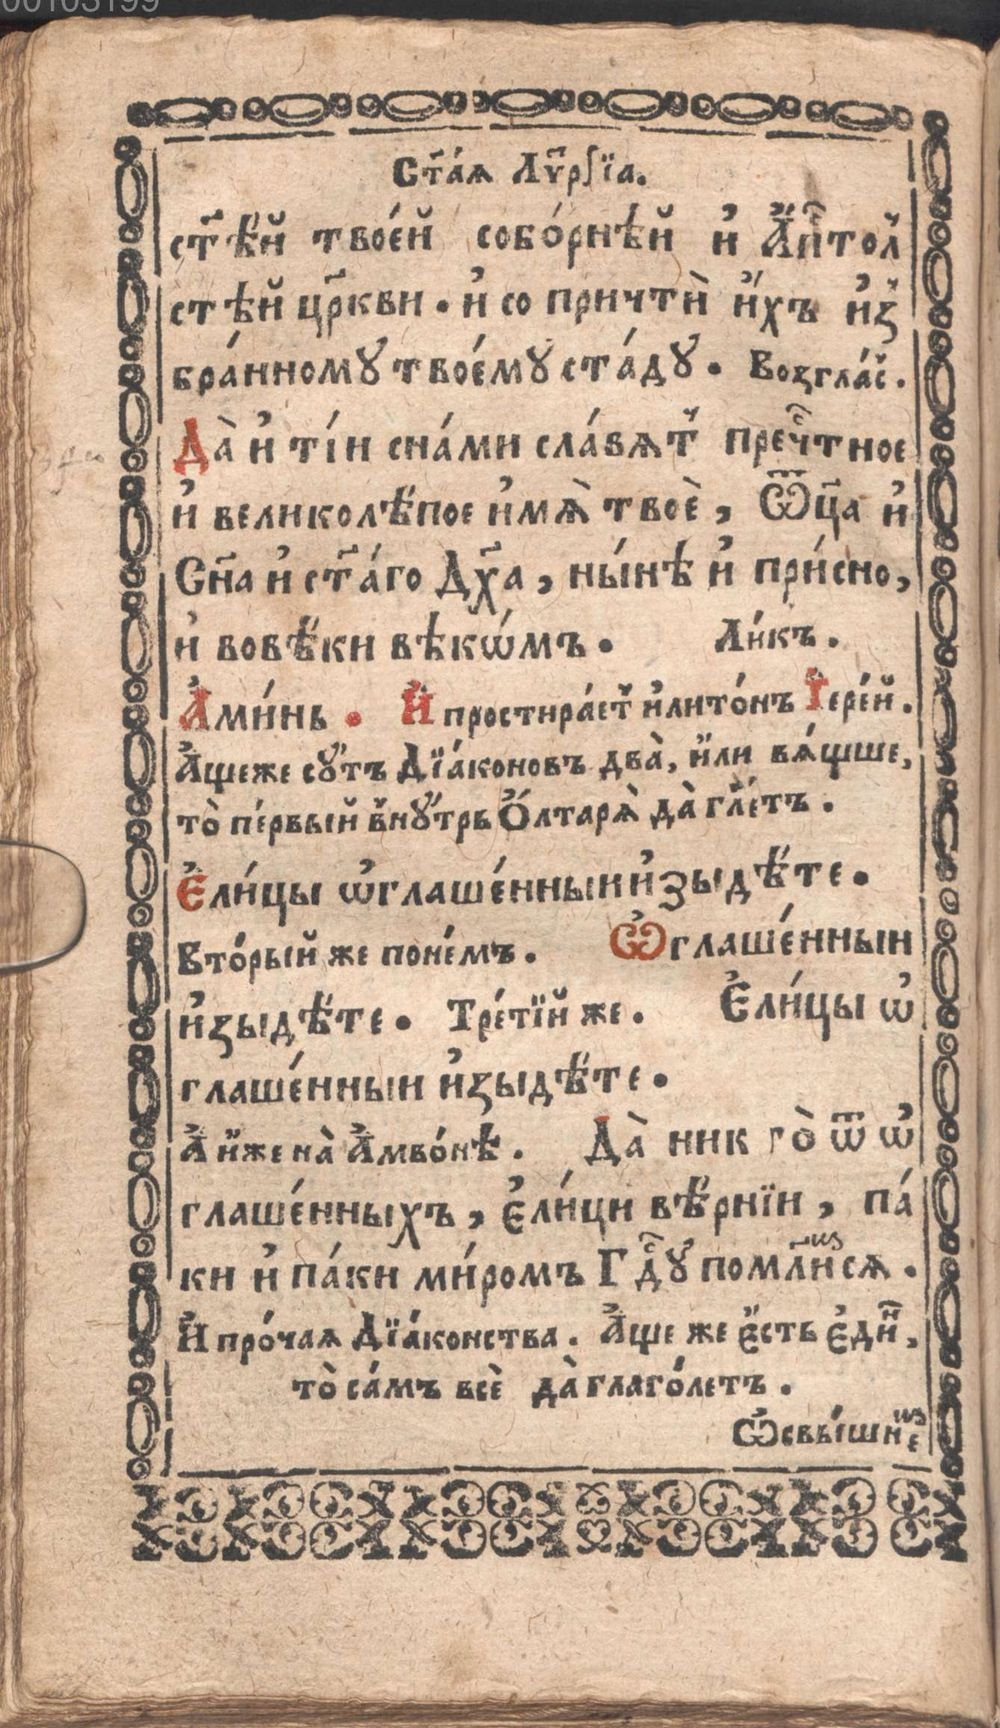 00103199
Ст҃а́ѧ Лѵ҃рѕїа.
ст҃ѣ́й твое́й собо́рнѣй и҆ А҆п҃тол
стѣй цр҃кви. и҆ со причти̇̀ и҆́хъ и҆з̾
бра́нномꙋ твое́мꙋ ста́дꙋ. Возгла́с.
Да̀ и҆ ті́и сна́ми сла́вѧт пречⷭ҇тное
и҆ великолѣ́пое и҆мѧ̀ твоѐ, Ѿц҃а и҆
Сн҃а и҆ ст҃а́го Дх҃а, ны́нѣ и҆ при́сно,
и҆ вовѣ́ки вѣкѡ́мъ. Ли́къ.
А҆ми́нь. И҆ простира́ет и҆лито́нъ І҆ере́й.
А҆щеже сꙋ́тъ Дїа́коновъ два̀, и҆́ли вѧ́щше,
то̀ пе́рвый внꙋ́трь О҆́лтарѧ̀ да̀ гл҃етъ.
Е҆ли́цы ѡ҆глаше́нныи и҆зыдѣ́те.
Вто́рый же поне́мъ. Ѡ҆глаше́нныи
и҆зыдѣ́те. Тре́тїй же. Е҆ли́цы ѡ҆
глаше́нныи и҆зыдѣ́те.
А҆ и҆́же на̀ А҆мво́нѣ. Да̀ ник го̀ ѿ ѡ҆
глаше́нныхъ, є҆ли́ци вѣ́рнїи, па́
ки и҆ па́ки ми́ромъ Гдⷭ҇ꙋ помл҃имсѧ.
И҆ про́чаѧ Дїа́конства. А҆ще же є҆́сть є҆ди́н,
то̀ са́мъ всѐ да̀ глаго́летъ.
Ѡ҆свы́шнⷨе